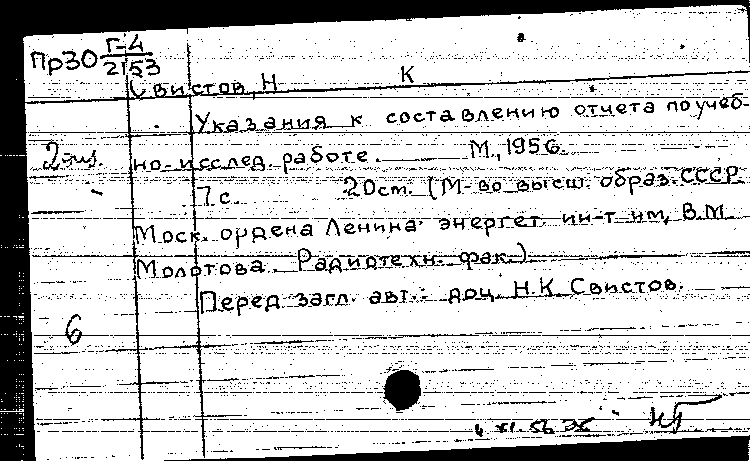 Пр30 Г-4
2153
Свистов, Н К
Указания к составлению отчета по учеб-
2-экз. но-исслед. работе. М., 1956.
7 с. 20 см. (М-во высш. образ. СССР
Моск. ордена Ленина энергет. ин-т им. В.М.
Молотова. Радиотехн. фак.).
Перед загл. авт.: доц. Н.К. Свистов.
6